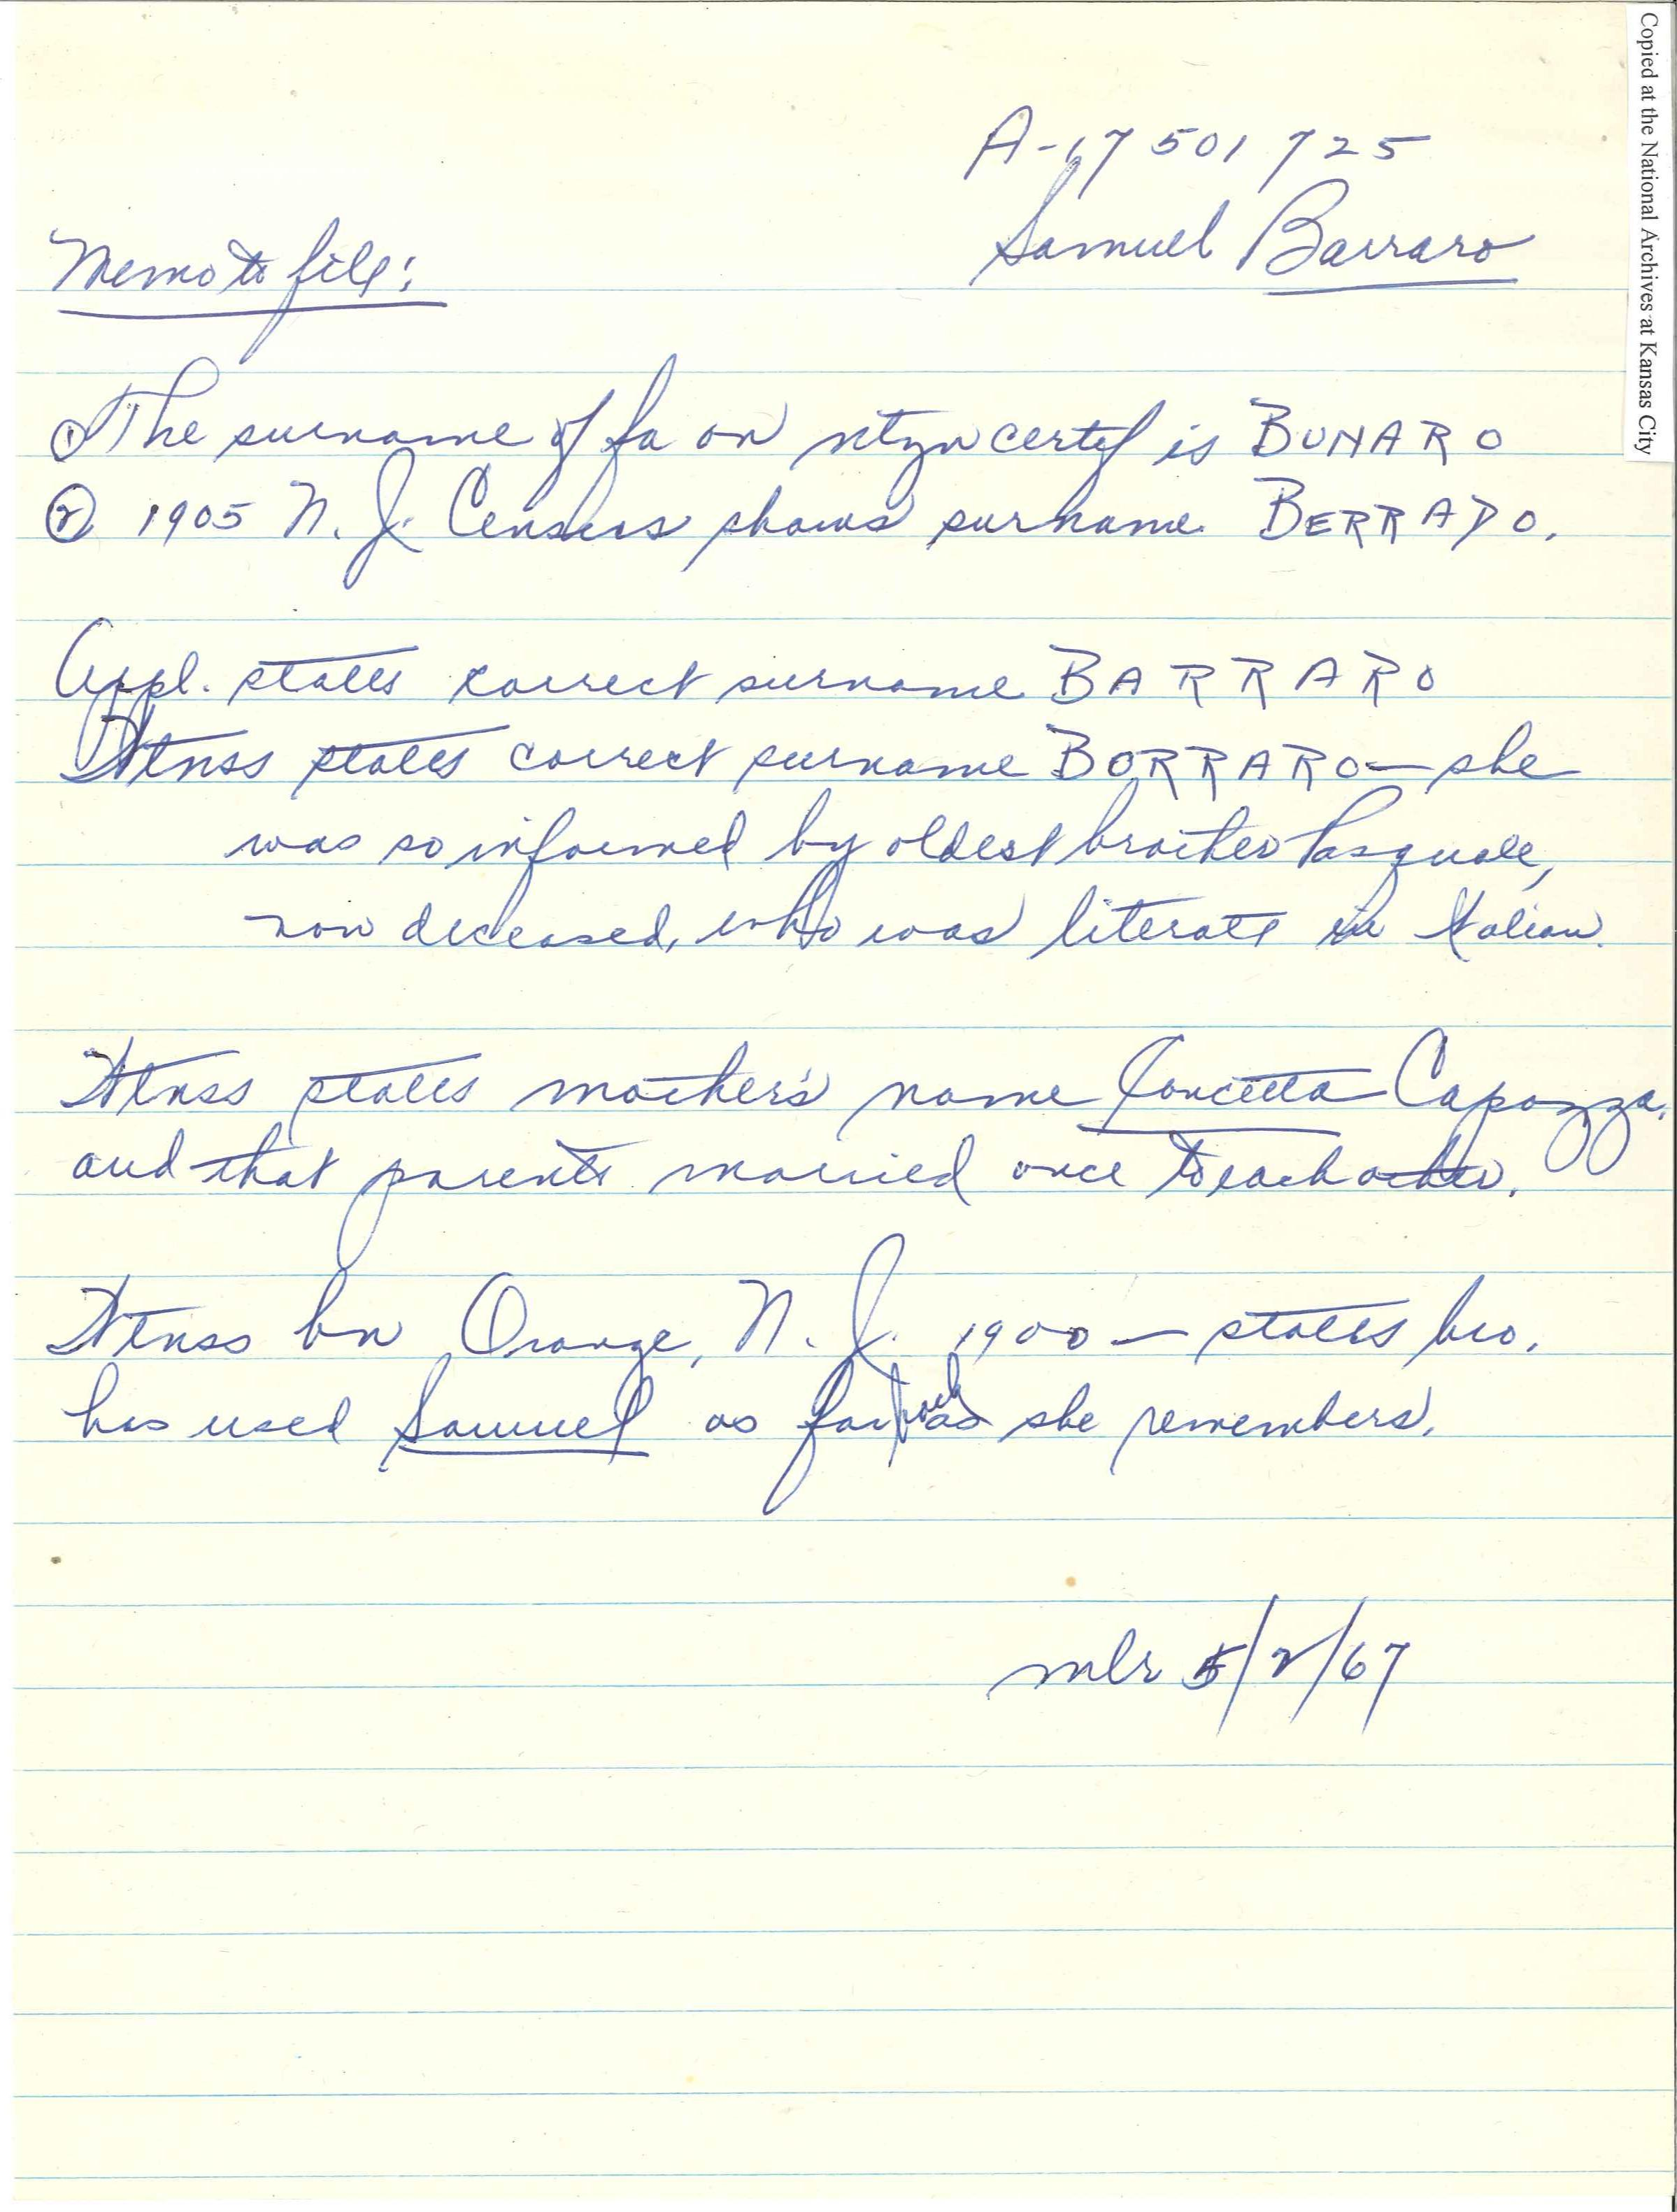 Copied at the National Archives at Kansas City
A-17 501 725
Samuel Barraro
Memo to file:
① The surname of fa on ntzn certif is BUNARO
② 1905 N. J. Census shows surname BERRADO.
Appl. states correct surname BARRARO
Wtnss states correct surname BORRARO — she
was so informed by oldest brother Pasquale,
now deceased, who was literate in Italian.
Wtnss states mother's name Concetta Capozza,
and that parents married once to each other.
Wtnss bn Orange, N. J. 1900 — states bro.
has used Samuel as far back as she remembers.
mlr 5/2/67